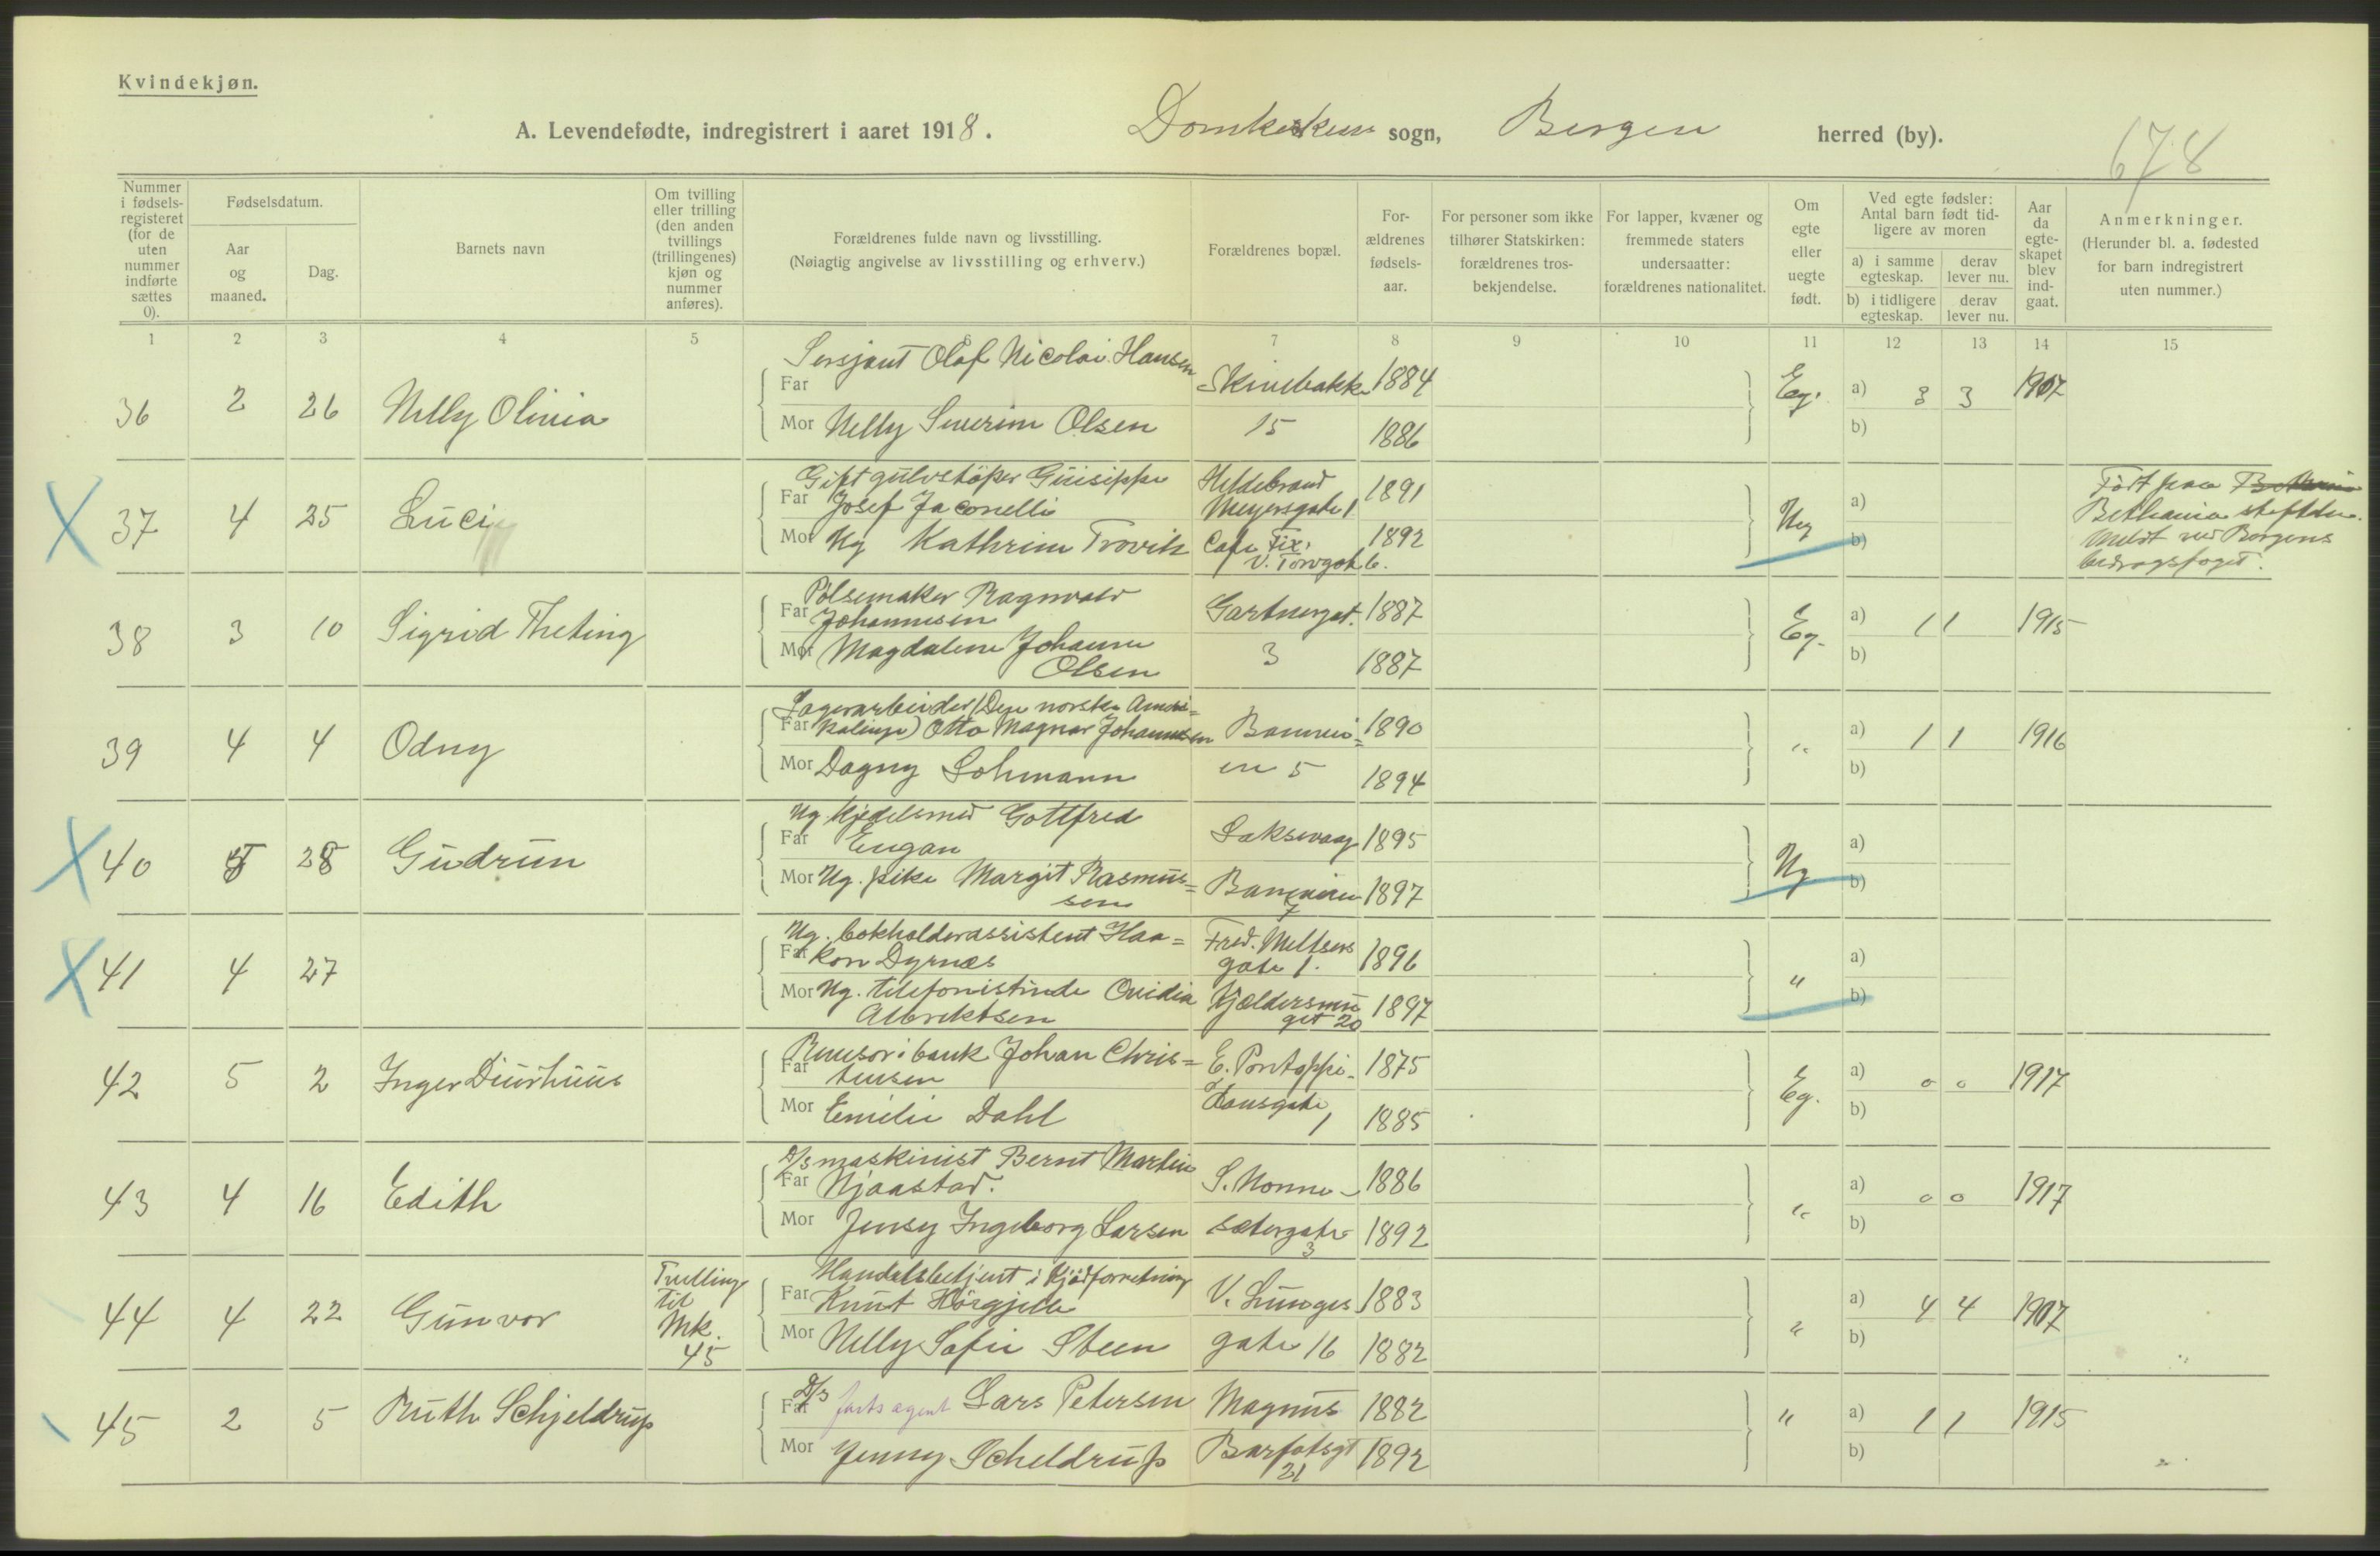 Kvindekjøn.
A. Levendefødte, indregistrert i aaret 1918. Domkirken sogn, Bergen herred (by).
678
Nummer i fødsels-registeret (for de uten nummer indførte sættes 0).
Fødselsdatum.
Aar og maaned.
Dag.
Barnets navn
Om tvilling eller trilling (den anden tvillings (trillingenes) kjøn og nummer anføres).
Forældrenes fulde navn og livsstilling.
(Nøiagtig angivelse av livsstilling og erhverv.)
Forældrenes bopæl.
For-ældrenes fødsels-aar.
For personer som ikke tilhører Statskirken: forældrenes tros-bekjendelse.
For lapper, kvæner og fremmede staters undersaatter: forældrenes nationalitet.
Om egte eller uegte født.
Ved egte fødsler: Antal barn født tid-ligere av moren
a) i samme egteskap.
derav lever nu.
b) i tidligere egteskap.
derav lever nu.
Aar da egte-skapet blev ind-gaat.
Anmerkninger.
(Herunder bl. a. fødested for barn indregistrert uten nummer.)
1 2 3 4 5 6 7 8 9 10 11 12 13 14 15
Sersjant Olaf Nicolai Hansen
36 2 26 Nelly Olivia Far Skivebakk 1884 Eg. a) 3 3 1907
Mor Nelly Severine Olsen 15 1886 b)
Gift gulvstøper Guiseppe Hildebrand
37 4 25 Luci Far Josef Jaconelli Meyersgate 1 1891 Ug a)
Mor Ug Kathrine Trovik Cafe Fix, V. Torvgat 6. 1892 b)
Født paa
Bethania stiftelse.
Meldt ved Bergens
bidragsfoget.
Pølsemaker Ragnvald
38 3 10 Sigrid Theting Far Johannesen Gartnergat. 1887 Eg. a) 1 1 1915
Mor Magdalene Johanne Olsen 3 1887 b)
Lagerarbeider (Den norske Ameri=
39 4 4 Odny Far kalinje) Otto Magnar Johannesen 1890 " a) 1 1 1916
Mor Dagny Lohmann en 5 1894 b)
Ug. Kjedelsmed Gottfred
40 5 28 Gudrun Far Engan Laksevaag 1895 Ug a)
Mor Ug. pike Margit Rasmus=sen 7 1897 b)
Ug. bokholderassistent Haa= Fred. Meltzers
41 4 27 Far kon Dyrnæs gate 1. 1896 " a)
Mor Ug. telefonistinde Ovidia Albriktsen Kjældersmu get 20 1897 b)
Revisor i bank Johan Chris=
42 5 2 Inger Diurhuus Far tensen E. Pontoppi- 1875 Eg. a) 0 0 1917
Mor Emilie Dahl dansgate 1 1885 b)
D/s maskinist Bernt Martin
43 4 16 Edith Far Njaastad. S. Nonne- 1886 " a) 0 0 1917
Mor Jensy Ingeborg Larsen sætergate 3 1892 b)
Handelsbetjent i Kjødforretning
44 4 22 Gunvor Tvilling til Mk. 45 Far Knut V. Lunges 1883 " a) 4 4 1907
Mor Nelly Sofie Steen gate 16 1882 b)
45 2 5 Ruth Schjeldrup Far D/s farts agent Lars Petersen Magnus 1882 " a) 1 1 1915
Mor Jenny Scheldrup Barfotsgt 21 1892 b)